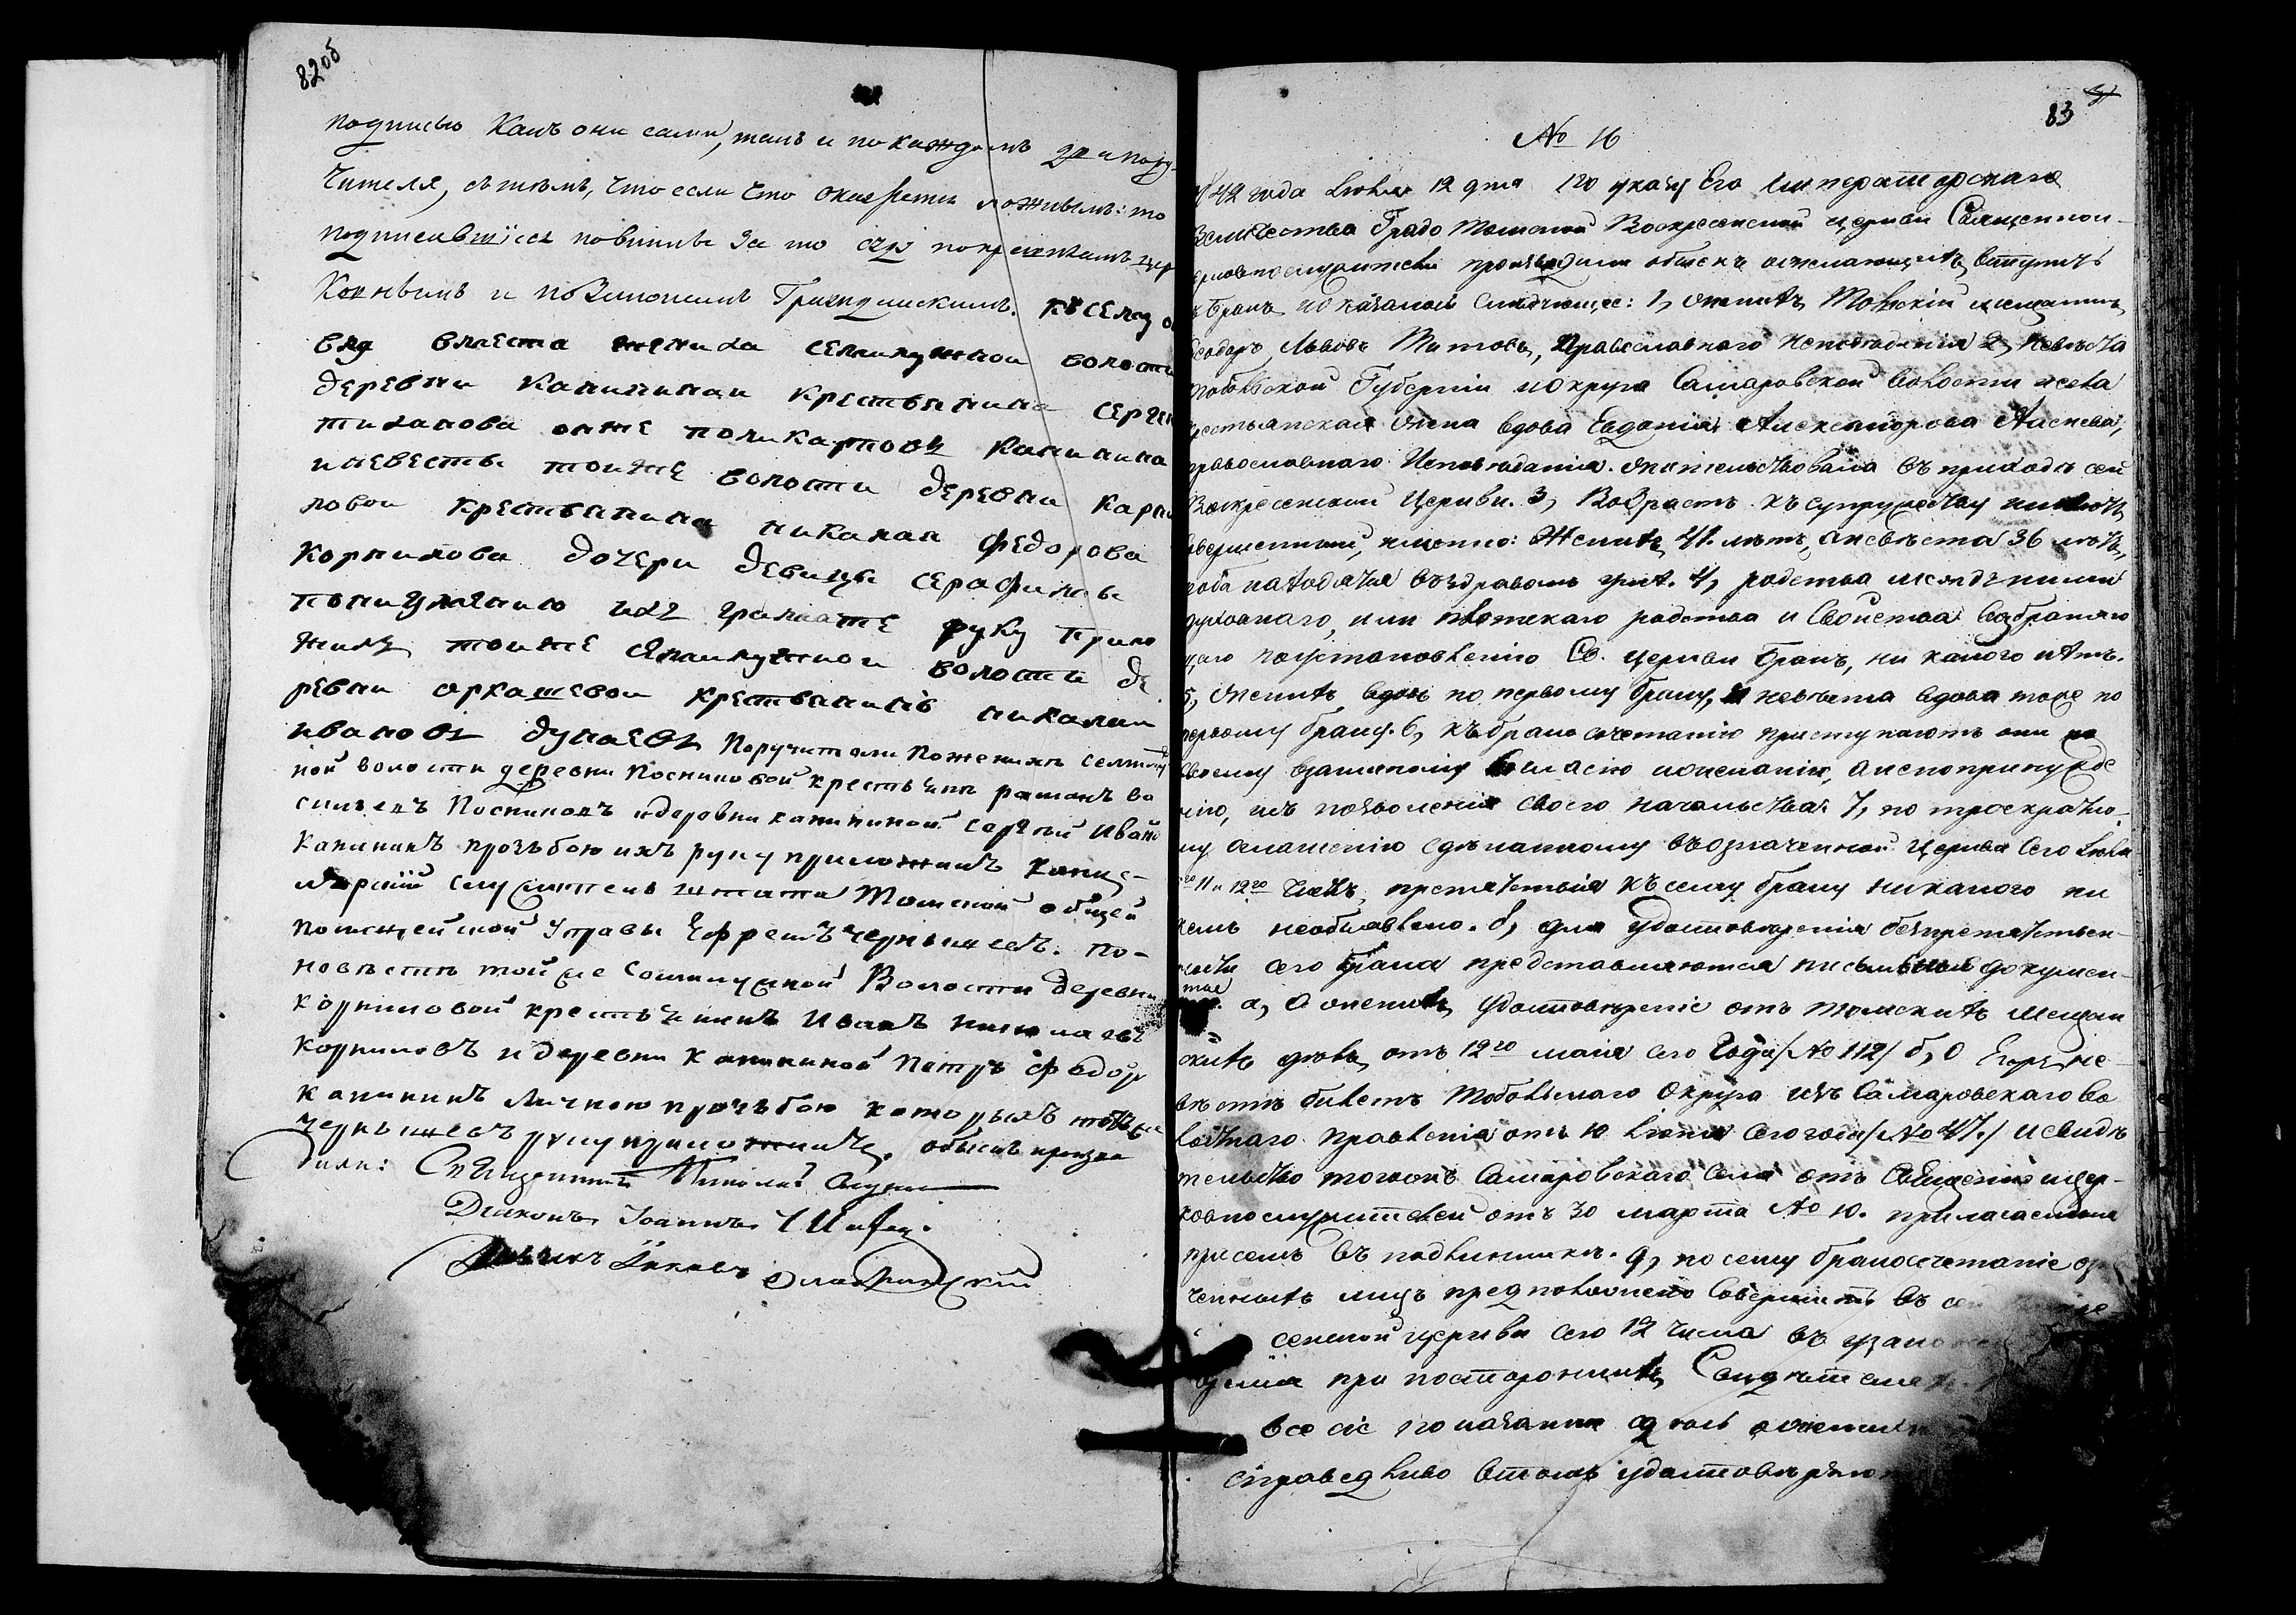 82об
подписью какъ они сами, такъ и по каждомъ
чителя, съ тѣмъ, что если что окажется ложнымъ: то
подписавшіеся повинны за то суду по правиламъ цер
ковнымъ и по законамъ Гражданскимъ. Къ сему
вмѣста жениха семилужной волости
деревни Капининай крестьянина Сергея
тиханова онже Поликарповъ Капинина
иневесты тойже волости деревни Карни
ловои крестьянина николая Федорова
Корнилова дочери девицы Серафимы
понеумѣнию ихъ грамате руку прило
жилъ тойже Семилужнои волости де
ревни аркашевои крестьянинъ николаи
ивановъ дунаевъ Поручители поженихѣ Семилуж
ной волости деревни Коснинской крестьянинъ романъ Ва
сильевъ Посниковъ идеревни капининой Сергѣй Ивано
Капининъ прозьбою ихъ руку приложилъ Канце-
лярскій служитель штата Томской общей
полицейской Управы Ефремъ Чернышевъ. По-
невѣстѣ той же Семилужной Волости деревни
корниловой крестьянинъ Иванъ николаевъ
Корниловъ и деревни Капининой Петръ Федор
Капининъ личною прозьбою которыхъ тотъже
чернышевъ руку приложилъ. обыскъ произво
дили: Священникъ Николай
Діаконъ Іоаннъ
Дьячекъ Яковъ
83
№ 16
1842 года Іюля 12 дня По указу Его Императорскаго
Величества Градо Томской Воскресенской церкви Священно-
церковнослужители производили обыскъ ожелающихъ вступить
въ бракъ и оказалось слѣдующее: 1, женихъ Томскій мещанинъ
Феодоръ Львовъ Титовъ, Православнаго исповѣданія 2, Невѣста
Тобольской Губерніи и округа Самаровской волости исела
крестьянская жена вдова Евдокія Александрова
православнаго Исповѣданія. жительствовала въ приходѣ сей
Воскресенской Церкви. 3, Возрастъ къ супружеству имѣютъ
совершенный, именно: Женихъ 41. лѣтъ, аневѣста 36 лѣтъ,
оба находятся въздравомъ умѣ. 4, родства между ними
духовнаго, или плотскаго родства и Свойства возбраняю
щаго поустановленію Св. церкви бракъ, ни какого нѣтъ.
5, Женихъ вдовъ по первому браку, и невѣста вдова тоже по
первому браку. 6, къ бракосочетанію приступаютъ они по
своему взаимному согласію ижеланію, анепопринужде
нію, исъ позволенія своего начальства. 7, по троекратно-
му оглашенію сдѣланному въозначенной Церкви Сего Іюля
го 11 и 12го чиселъ, препятствія къ сему браку никакого ни
кемъ необъявлено. 8, для удостовѣренія безпрепятствен-
ности сего брака представляются письменные докумен-
ты. а, о женихѣ удостовѣреніе отъ томскихъ мещан
скихъ дѣлъ отъ 12го мая сего Года /№ 112/ б, О Евоне-
вѣстѣ билетъ Тобольскаго Округа изъ Самаровскаго Во
лостнаго Правленія отъ 10 Іюня сего года /№ 47./ и свидѣ
тельство тогожъ Самаровскаго Села отъ Священно ицер-
ковнослужителей отъ 30 марта № 10. прилагаемые
присемъ въ подлинникѣ. 9, по сему бракосочетаніе озна
ченныхъ лицъ предположено совершить въ сей
сенской церкви сего 12 числа въ узаконенное
время при постороннихъ Свидѣтеляхъ.
все сіе показанное здѣсь
справедливо втомъ удостовѣряютъ